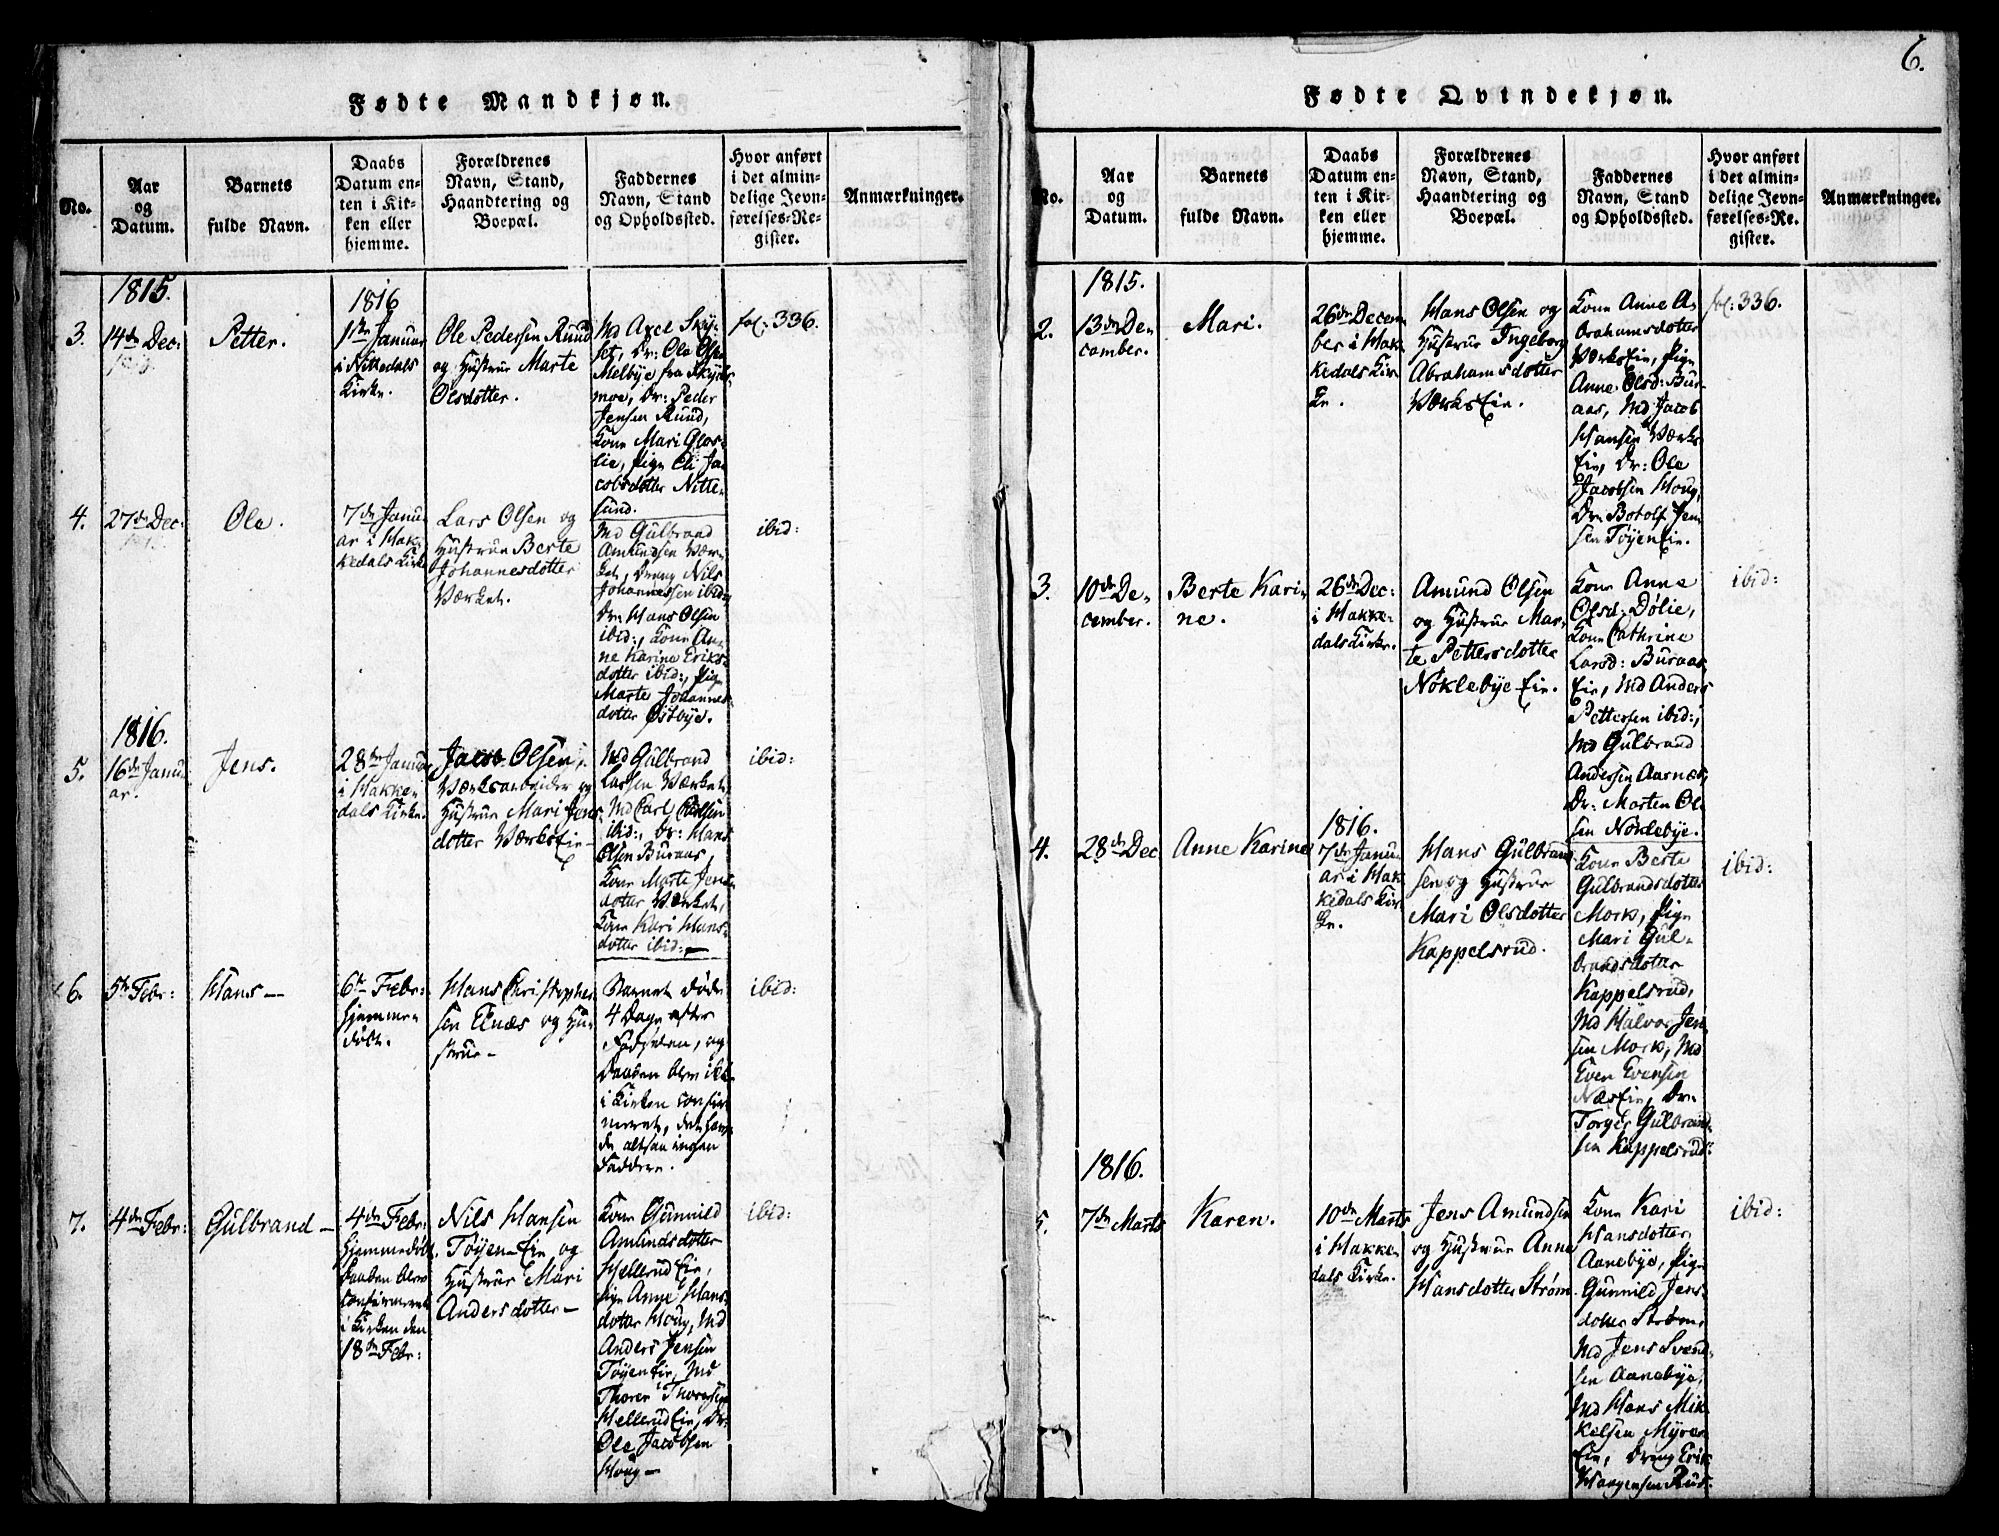 6.
Fødte Mandkjøn.
No.
Aar
og
Datum.
Barnets
fulde Navn.
Daabs
Datum en-
ten i Kir-
ken eller
hjemme.
Forældrenes
Navn, Stand,
Haandtering og
Boepæl.
Faddernes
Navn, Stand
og Opholdssted.
Hvor anført
i det almin-
delige Jevn-
førelses-Re-
gister.
Anmærkninger.
3.
1815.
14de Dec:
Petter.
1816
1ste Januar
i Nittedals
Kirke.
Ole Pedersen Ruud
og Hustrue Marte
Olsdotter.
Md Axel Sky-
set, Dr: Ole Olsen
Melbye fra Skyds-
moe, Dr: Peder
Jensen Ruud,
Kone Mari Glos-
lie, Pige Eli Ja-
cobsdotter Nitte-
sund.
fol: 336.
4.
27de Dec:
1815.
Ole.
7de Janu-
ar i Hak-
kedals Kirke
Lars Olsen og
Hustrue Berte
Johannesdotter
Værket.
Md Gulbrand
Amundsen Vær-
ket, Dreng Nils
Johannessen ibid:,
Dr: Hans Olsen
ibid:, Kone An-
ne Karine Eriks-
dotter ibid:, Pige
Marte Johannes-
dotter Østbye.
ibid:
5.
1816.
16de Janu-
ar.
Jens.
28de Januar
i Hakke-
dals Kirke.
Jacob Olsen,
Værksarbeider og
Hustrue Mari Jens-
dotter VærksEie—
Md Gulbrand
Larsen Værket,
Md Carl Carlsen
ibid:, Dr: Hans
Olsen Buraas,
Kone Marte Jens-
dotter Værket,
Kone Kari Hans-
dotter ibid:—
ibid:
6.
5te Febr:
Hans—
6te Febr:
hjemme-
døbt.
Hans Christopher-
sen Elnæs og Hu-
strue—
Barnet døde
4 Dage efter
Fødselen, og
Daaben blev ikke
i Kirken confir-
meret, det hav-
de altsaa ingen
Faddere.
ibid:
7.
4de Febr:
Gulbrand—
4de Febr:
hjemmedøbt.
Daaben blev
confirmeret
i Kirken den
18de Febr:
Nils Hansen
TøyenEie og
Hustrue Mari
Andersdotter—
Kone Gunnild
Amundsdotter
HellerudEie,
Pige Anne Hans-
dotter Houg, Md
Anders Jensen
TøyenEie, Md
Thorer Thoresen
HellerudEie, Dr:
Ole Jacobsen
Houg—
ibid:
Fødte Qvindekjøn.
No.
Aar
og
Datum.
Barnets
fulde Navn.
Daabs
Datum en-
ten i Kir-
ken eller
hjemme.
Forældrenes
Navn, Stand,
Haandtering og
Boepæl.
Faddernes
Navn, Stand
og Opholdssted.
Hvor anført
i det almin-
delige Jevn-
førelses-Re-
gister.
Anmærkninger.
2.
1815.
13de De-
cember.
Mari.
26de Decem-
ber i Hak-
kedals Kir-
ke.
Hans Olsen og
Hustrue Ingeborg
Abrahamsdotter
VærksEie.
Kone Anne A-
brahamsdotter
VærksEie, Pige
Anne Olsd: Bur-
aas, Md Jacob
Hansen Værks-
Eie, Dr: Ole
Jacobsen Houg,
Dr: Botolf Jen-
sen TøyenEie.
fol: 336.
3.
10de De-
cember.
Berte Kari-
ne.
26de Dec:
i Hakke-
dals Kirke.
Amund Olsen
og Hustrue Mar-
te Pettersdotter
NøklebyeEie.
Kone Anne
Olsd: Dølie,
Kone Cathrine
Larsd: Buraas-
Eie, Md Anders
Pettersen ibid:,
Md Gulbrand
Andersen Aarnæs,
Dr: Morten Ol-
sen Nøklebye.
ibid:
4.
28de Dec
Anne Karine
1816.
7de Janu-
ar i Hak-
kedals Kir-
ke.
Hans Gulbrand-
sen og Hustrue
Mari Olsdotter
Kappelsrud.
Kone Berte
Gulbrandsdotter
Mork, Pige
Mari Gul-
brandsdotter
Kappelsrud,
Md Halvor Jen-
sen Mork, Md
Even Evensen
NæsEie, Dr:
Torger Gulbrand-
sen Kappelsrud:
ibid:
5.
1816.
7de Marts
Karen.
10de Marts
i Hakke-
dals Kirke.
Jens Amundsen
og Hustrue Anne
Hansdotter Strøm.
Kone Kari
Hansdotter
Aanebye, Pige
Gunnild Jens-
dotter Strøm,
Md Jens Svend-
sen Aanebye,
Md Hans Mik-
kelsen Myrer-
Eie, Dreng Erik
Haagensen Rud.
ibid: